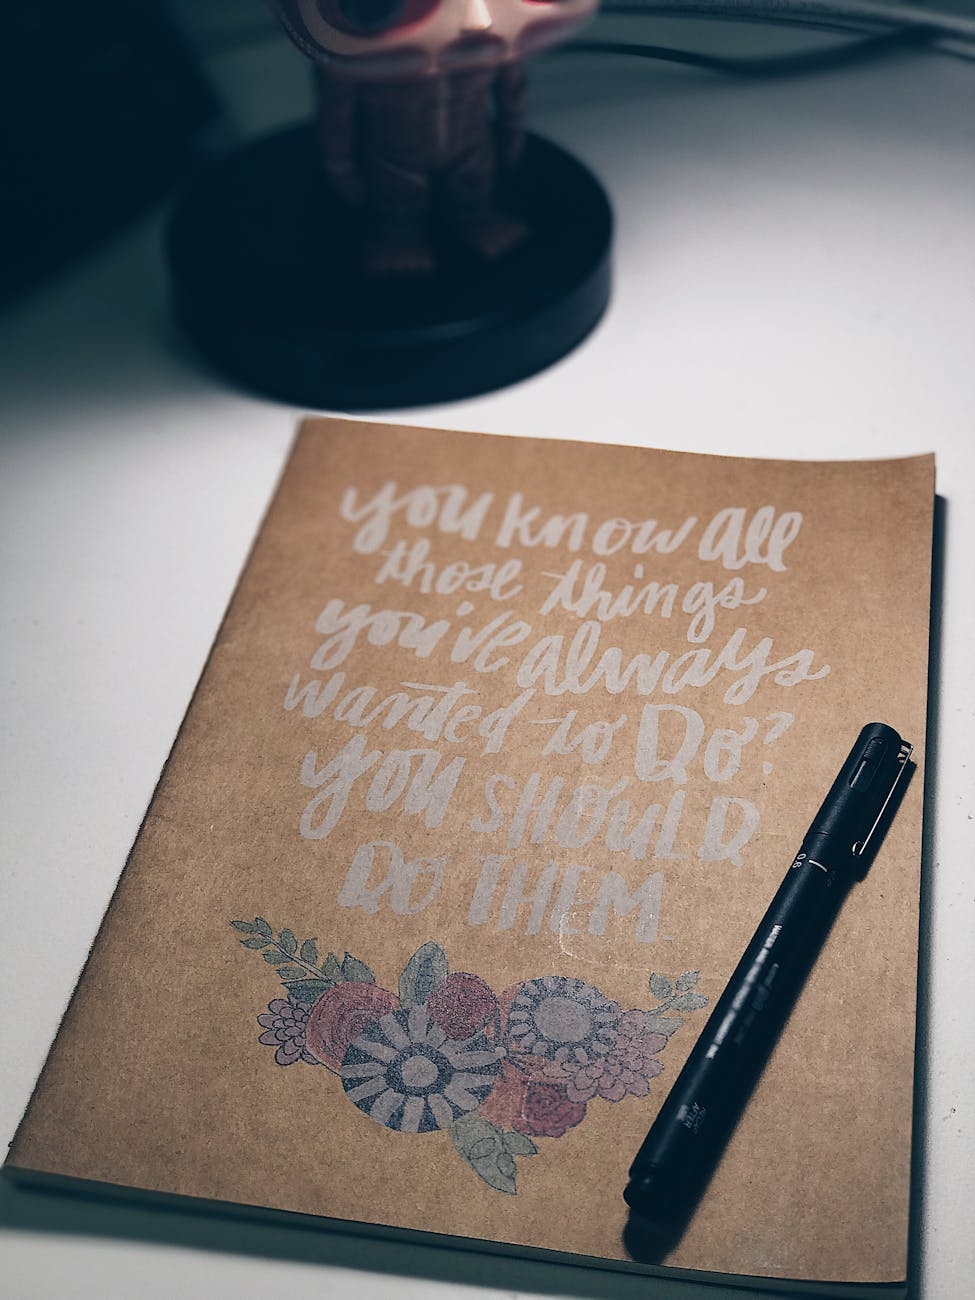 you know all
those things
you've always
wanted to Do?
you SHOULD
DO THEM
0.8